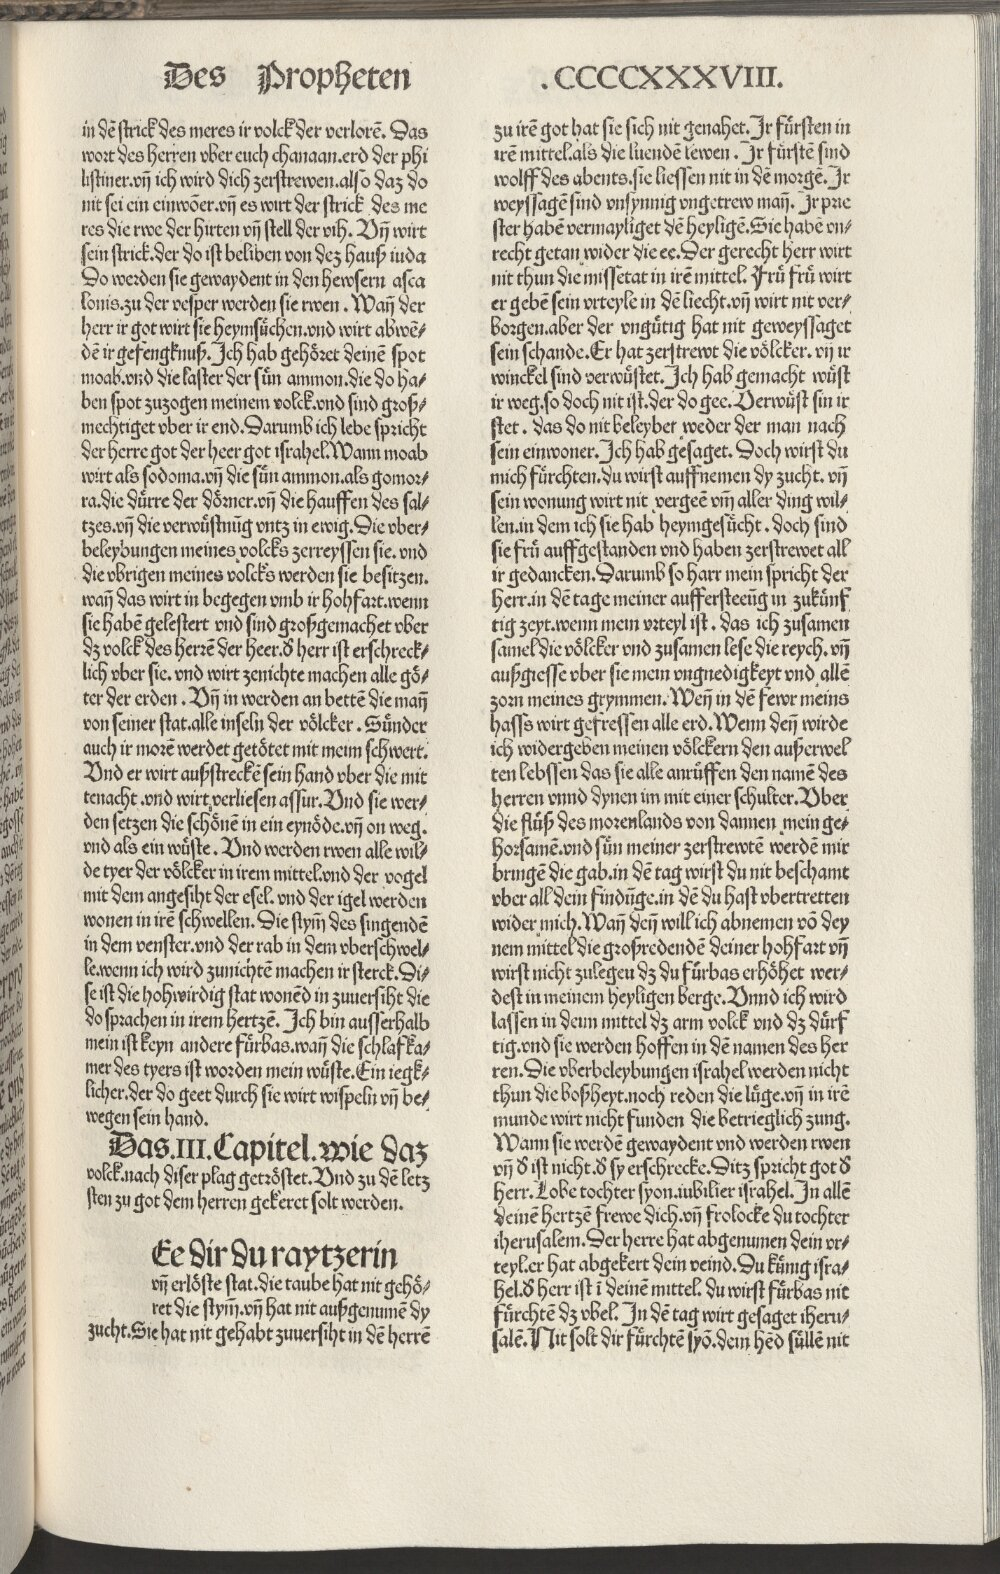 Des Propheten
.CCCCXXXVIII.
in dē strick des meres ir volck der verlorē. Das
wort des herren vber euch chanaan.erd der phi
listiner.vn̄ ich wird dich zerstrewen.also daz do
nit sei ein einwōer.vn̄ es wirt der strick des me
res die rwe der hirten vn̄ stell der vih. Vn̄ wirt
sein strick.der do ist beliben von dez hauß iuda
Do werden sie gewaydent in den hewsern asca
lonis.zu der vesper werden sie rwen . Wan̄ der
herr ir got wirt sie heymsůchen.vnd wirt abwē⸗
dē ir gefengknuß. Ich hab gehöret deinē spot
moab.vnd die laster der sün ammon.die do ha⸗
ben spot zuzogen meinem volck.vnd sind groß⸗
mechtiget vber ir end. Darumb ich lebe spricht
der herre got der heer got israhel.Wann moab
wirt als sodoma.vn̄ die sün ammon.als gomor⸗
ra.die dürre der dörner.vn̄ die hauffen des sal⸗
tzes.vn̄ die verwüstnüg vntz in ewig.Die vber⸗
beleybungen meines volcks zerreyssen sie. vnd
die vbrigen meines volcks werden sie besitzen.
wan̄ das wirt in begegen vmb ir hohfart.wenn
sie habē gelestert vnd sind großgemachet vber
dz volck des herrē der heer.d̓ herr ist erschreck⸗
lich vber sie. vnd wirt zenichte machen alle gö⸗
ter der erden . Vn̄ in werden an bettē die man̄
von seiner stat.alle inseln der völcker . Sünder
auch ir morē werdet getötet mit meim schwert.
Vnd er wirt außstreckē sein hand vber die mit
tenacht .vnd wirt verliesen assur. Vnd sie wer⸗
den setzen die schönē in ein eynöde.vn̄ on weg.
vnd als ein wüste . Vnd werden rwen alle wil⸗
de tyer der völcker in irem mittel.vnd der vogel
mit dem angesiht der esel. vnd der igel werden
wonen in irē schwellen. Die stym̄ des singendē
in dem venster.vnd der rab in dem vberschwel⸗
le.wenn ich wird zunichtē machen ir sterck.Di⸗
se ist die hohwirdig stat wonēd in zuuersiht die
do sprachen in irem hertzē. Ich bin ausserhalb
mein ist keyn andere fürbas.wan̄ die schlafka⸗
mer des tyers ist worden mein wüste.Ein iegk⸗
licher.der do geet durch sie wirt wispeln vn̄ be⸗
wegen sein hand.
Das.III.Capitel.wie daz
volck.nach diser plag getröstet.Vnd zu dē letz
sten zu got dem herren gekeret solt werden.
Ee dir du raytzerin
vn̄ erlöste stat.die taube hat nit gehö⸗
ret die stym̄.vn̄ hat nit außgenumē dy
zucht.Sie hat nit gehabt zuuersiht in dē herrē
zu irē got hat sie sich nit genahet. Ir fürsten in
irē mittel.als die luendē lewen . Ir fürstē sind
wolff des abents.sie liessen nit in dē morgē. Ir
weyssagē sind vnsynnig vngetrew man̄. Ir prie
ster habē vermayliget dē heyligē.Sie habē vn⸗
recht getan wider die ee.Der gerecht herr wirt
nit thun die missetat in irē mittel. Frü frü wirt
er gebē sein vrteyle in dē liecht.vn̄ wirt nit ver⸗
borgen.aber der vngütig hat nit geweyssaget
sein schande.Er hat zerstrewt die völcker. vn̄ ir
winckel sind verwüstet. Ich hab gemacht wüst
ir weg.so doch nit ist.der do gee.Verwüst sin ir
stet . das do nit beleybet weder der man nach
sein einwoner. Ich hab gesaget. Doch wirst du
mich fürchten.du wirst auffnemen dy zucht. vn̄
sein wonung wirt nit vergeē vm̄ aller ding wil⸗
len.in dem ich sie hab heymgesücht . doch sind
sie frü auffgestanden vnd haben zerstrewet all
ir gedancken.Darumb so harr mein spricht der
herr.in dē tage meiner auffersteeūg in zukünf
tig zeyt.wenn mein vrteyl ist . das ich zusamen
samel die völcker vnd zusamen lese die reych. vn̄
außgiesse vber sie mein vngnedigkeyt vnd allē
zorn meines grymmen. Wen̄ in dē fewr meins
hasss wirt gefressen alle erd. Wenn den̄ wirde
ich widergeben meinen völckern den außerwel
ten lebssen das sie alle anrüffen den namē des
herren vnnd dynen im mit einer schulter. Vber
die flüß des morenlands von dannen mein ge⸗
horsamē.vnd sün meiner zerstrewtē werdē mir
bringē die gab.in dē tag wirst du nit beschamt
vber all dein findüge.in dē du hast vbertretten
wider mich. Wan̄ den̄ will ich abnemen vō dey
nem mittel die großredendē deiner hohfart vn̄
wirst nicht zulegen dz du fürbas erhöhet wer⸗
dest in meinem heyligen berge. Vnnd ich wird
lassen in deim mittel dz arm volck vnd dz dürf
tig.vnd sie werden hoffen in dē namen des her
ren. Die vberbeleybungen israhel werden nicht
thun die boßheyt.noch reden die lüge.vn̄ in irē
munde wirt nicht funden die betrieglich zung.
Wann sie werdē gewaydent vnd werden rwen
vn̄ d̓ ist nicht.d̓ sy erschrecke. Ditz spricht got d̓
herr. Lobe tochter syon.iubilier israhel. In allē
deinē hertzē frewe dich.vn̄ frolocke du tochter
iherusalem. Der herre hat abgenumen dein vr⸗
teyl.er hat abgekert dein veind. Du künig isra⸗
hel.d̓ herr ist ī deinē mittel. du wirst fürbas nit
fürchtē dz vbel. In dē tag wirt gesaget iheru⸗
salē. Nit solt dir fürchtē syō.dem hēd süllē nit